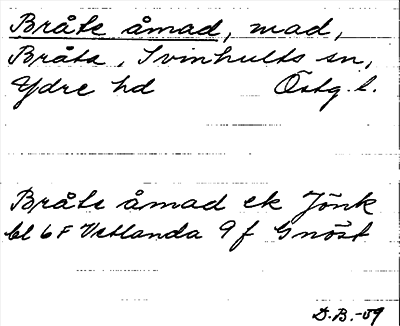 Bråta åmad, mad,
Bråta, Svinhults sn,
Ydre hd Östg. l.
Bråta åmad ek Jönk
bl 6 F Vetlanda 9 f Gnöst
D.B.-59